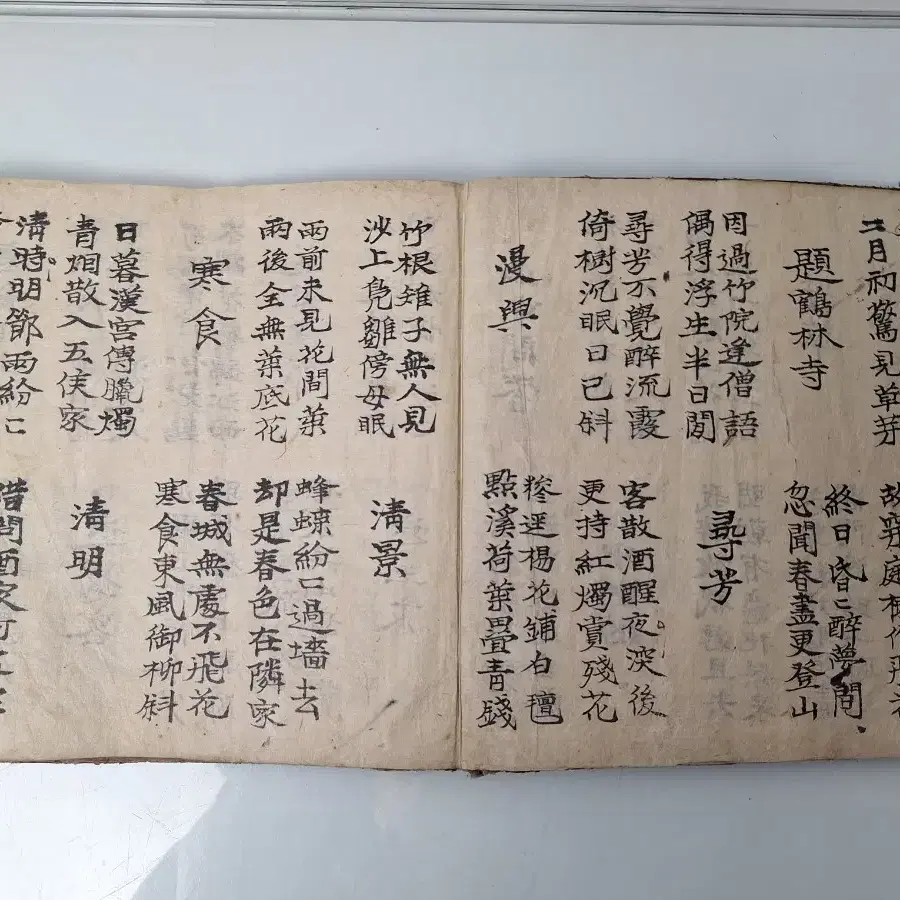 二月初驚見草芽
故穿庭樹作飛
題鶴林寺
終日昏〻醉夢間
忽聞春盡更登山
因過竹院逢僧語
偶得浮生半日閒
尋芳
尋芳不覺醉流霞
倚樹沉眠日已斜
客散酒醒夜深後
更持紅燭賞殘花
漫興
糝逕楊花鋪白氊
點溪荷葉疊青錢
竹根雉子無人見
沙上鳧雛傍母眠
淸景
雨前未見花間葉
雨後全無葉底花
蜂蝶紛〻過墻去
却是春色在隣家
寒食
春城無處不飛花
寒食東風御柳斜
日暮漢宮傳臘燭
青烟散入五侯家
淸明
淸時明節雨紛〻
借問酒家何